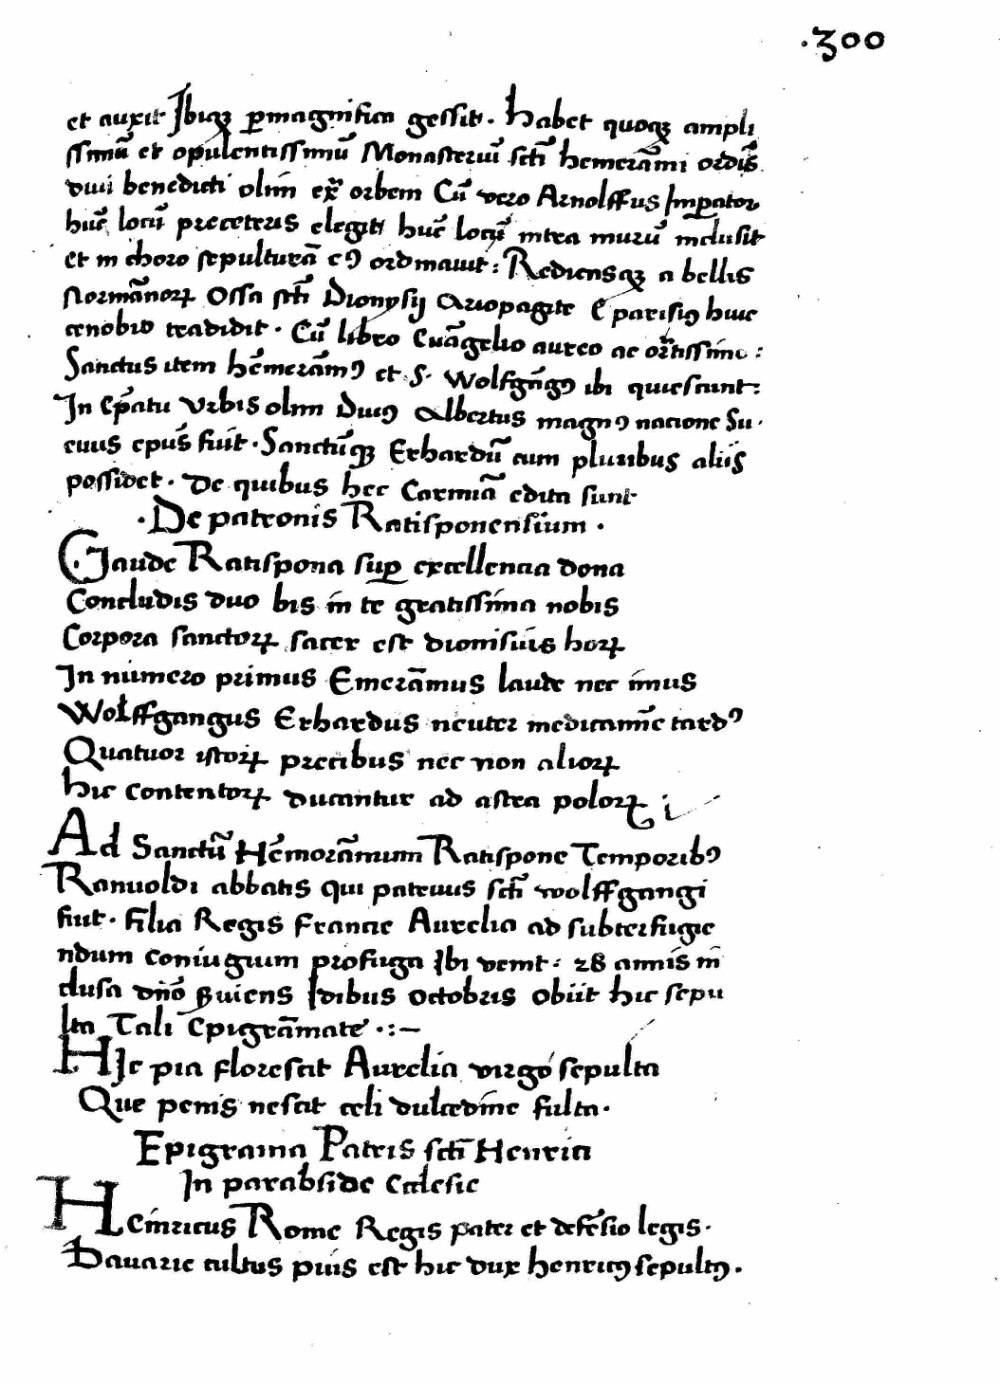 ·300
et auxit Ibiqꝫ ꝑmagnifica gessit. habet quoqꝫ ampli
ssimū et opulentissimū Monasteriuı̄ sctı̄ hemerāmi ordıs̄
diui benedicti olim ex̄ orbem Cū vero Arnolffus Imꝑator
huc̄ locū preceteris elegit huc̄ locū intra murū inclusit
et in choro sepulturā eꝯ ordinauit: Rediensqꝫ a bellis
Normānoꝝ Ossa sctı̄ Dionysij Ariopagite E parisiꝯ huic
cenobio tradidit. Cū libro Euāgelio aureo ac or̄tissimo:
Sanctus item hēmerāmꝯ et .S. Wolfgāgꝯ ibi quiescunt:
In cp̄atu Vrbis olim Duiꝯ Albertus magnꝯ nacione Su.
euus epūs fuit. Sanctūqꝫ Erhardū cum pluribus aliis
possidet. De quibus hec Carmiā edita sunt
·De patronis Ratisponensium·
Gaude Ratispona suꝑ excellencia dona
Concludis duo bis in te gratissima nobis
Corpora sanctoꝝ sacer est dionisius hoꝝ
In numero primus Emerāmus laude nec imus
Wolffgangus Erhardus neuter medicamīe tardꝰ
Quatuor istoꝝ precibus nec non alioꝝ
hic contentoꝝ ducantur ad astra poloꝝ
Ad Sanctū Hēmorāmum Ratispone Temporibꝰ
Ranuoldi abbatis qui patruus sctı̄ wolffgangi
fuit. filia Regis francie Aurelia ad subterfugie
ndum coniugium profuga Ibi venit: 28 annis in
clusa dn̄o ꝓuiens Idibus octobris obiit hic sepu
lta Tali Epigrāmate ·:–
HIc pia florescit Aurelia virgo sepulta
Que penis nescit celi dulcedine fulta.
Epigrama Patris sctı̄ Henrici
In parabside Ecclesie
Heinricus Rome Regis pater et defēsio legis.
Bauarie cultus piis est hic dux henricꝯ sepultꝯ.